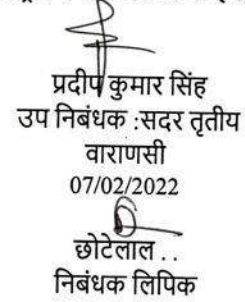 प्रदीप कुमार सिंह
उप निबंधक :सदर तृतीय
वाराणसी
07/02/2022
छोटेलाल . .
निबंधक लिपिक